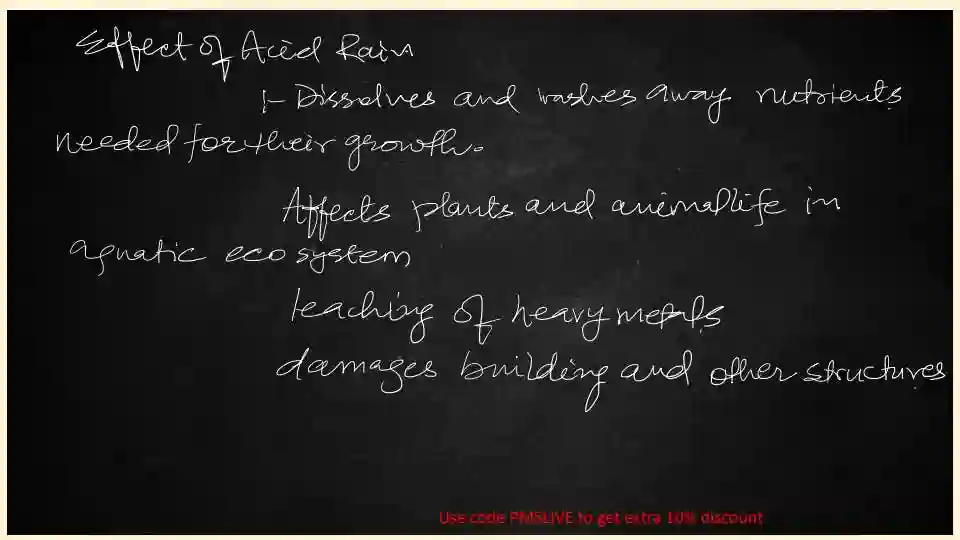 Effect of Acid Rain
1- Dissolves and washes away nutrients
needed for their growth.
Affects plants and animal life in
aquatic eco system
leaching of heavy metals
damages building and other structures
Use code PMSLIVE to get extra 10% discount